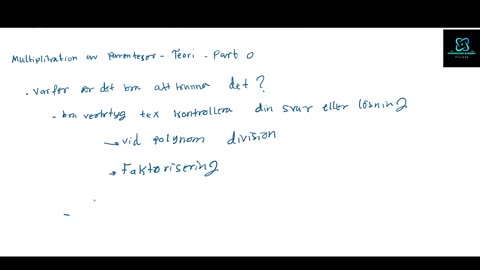 Multiplikation av Parenteser - Teori . Part 0
. Varför är det bra att kunna det ?
- bra verktyg tex kontrollera din svar eller lösning
→ vid polynom division
→ Faktorisering
-